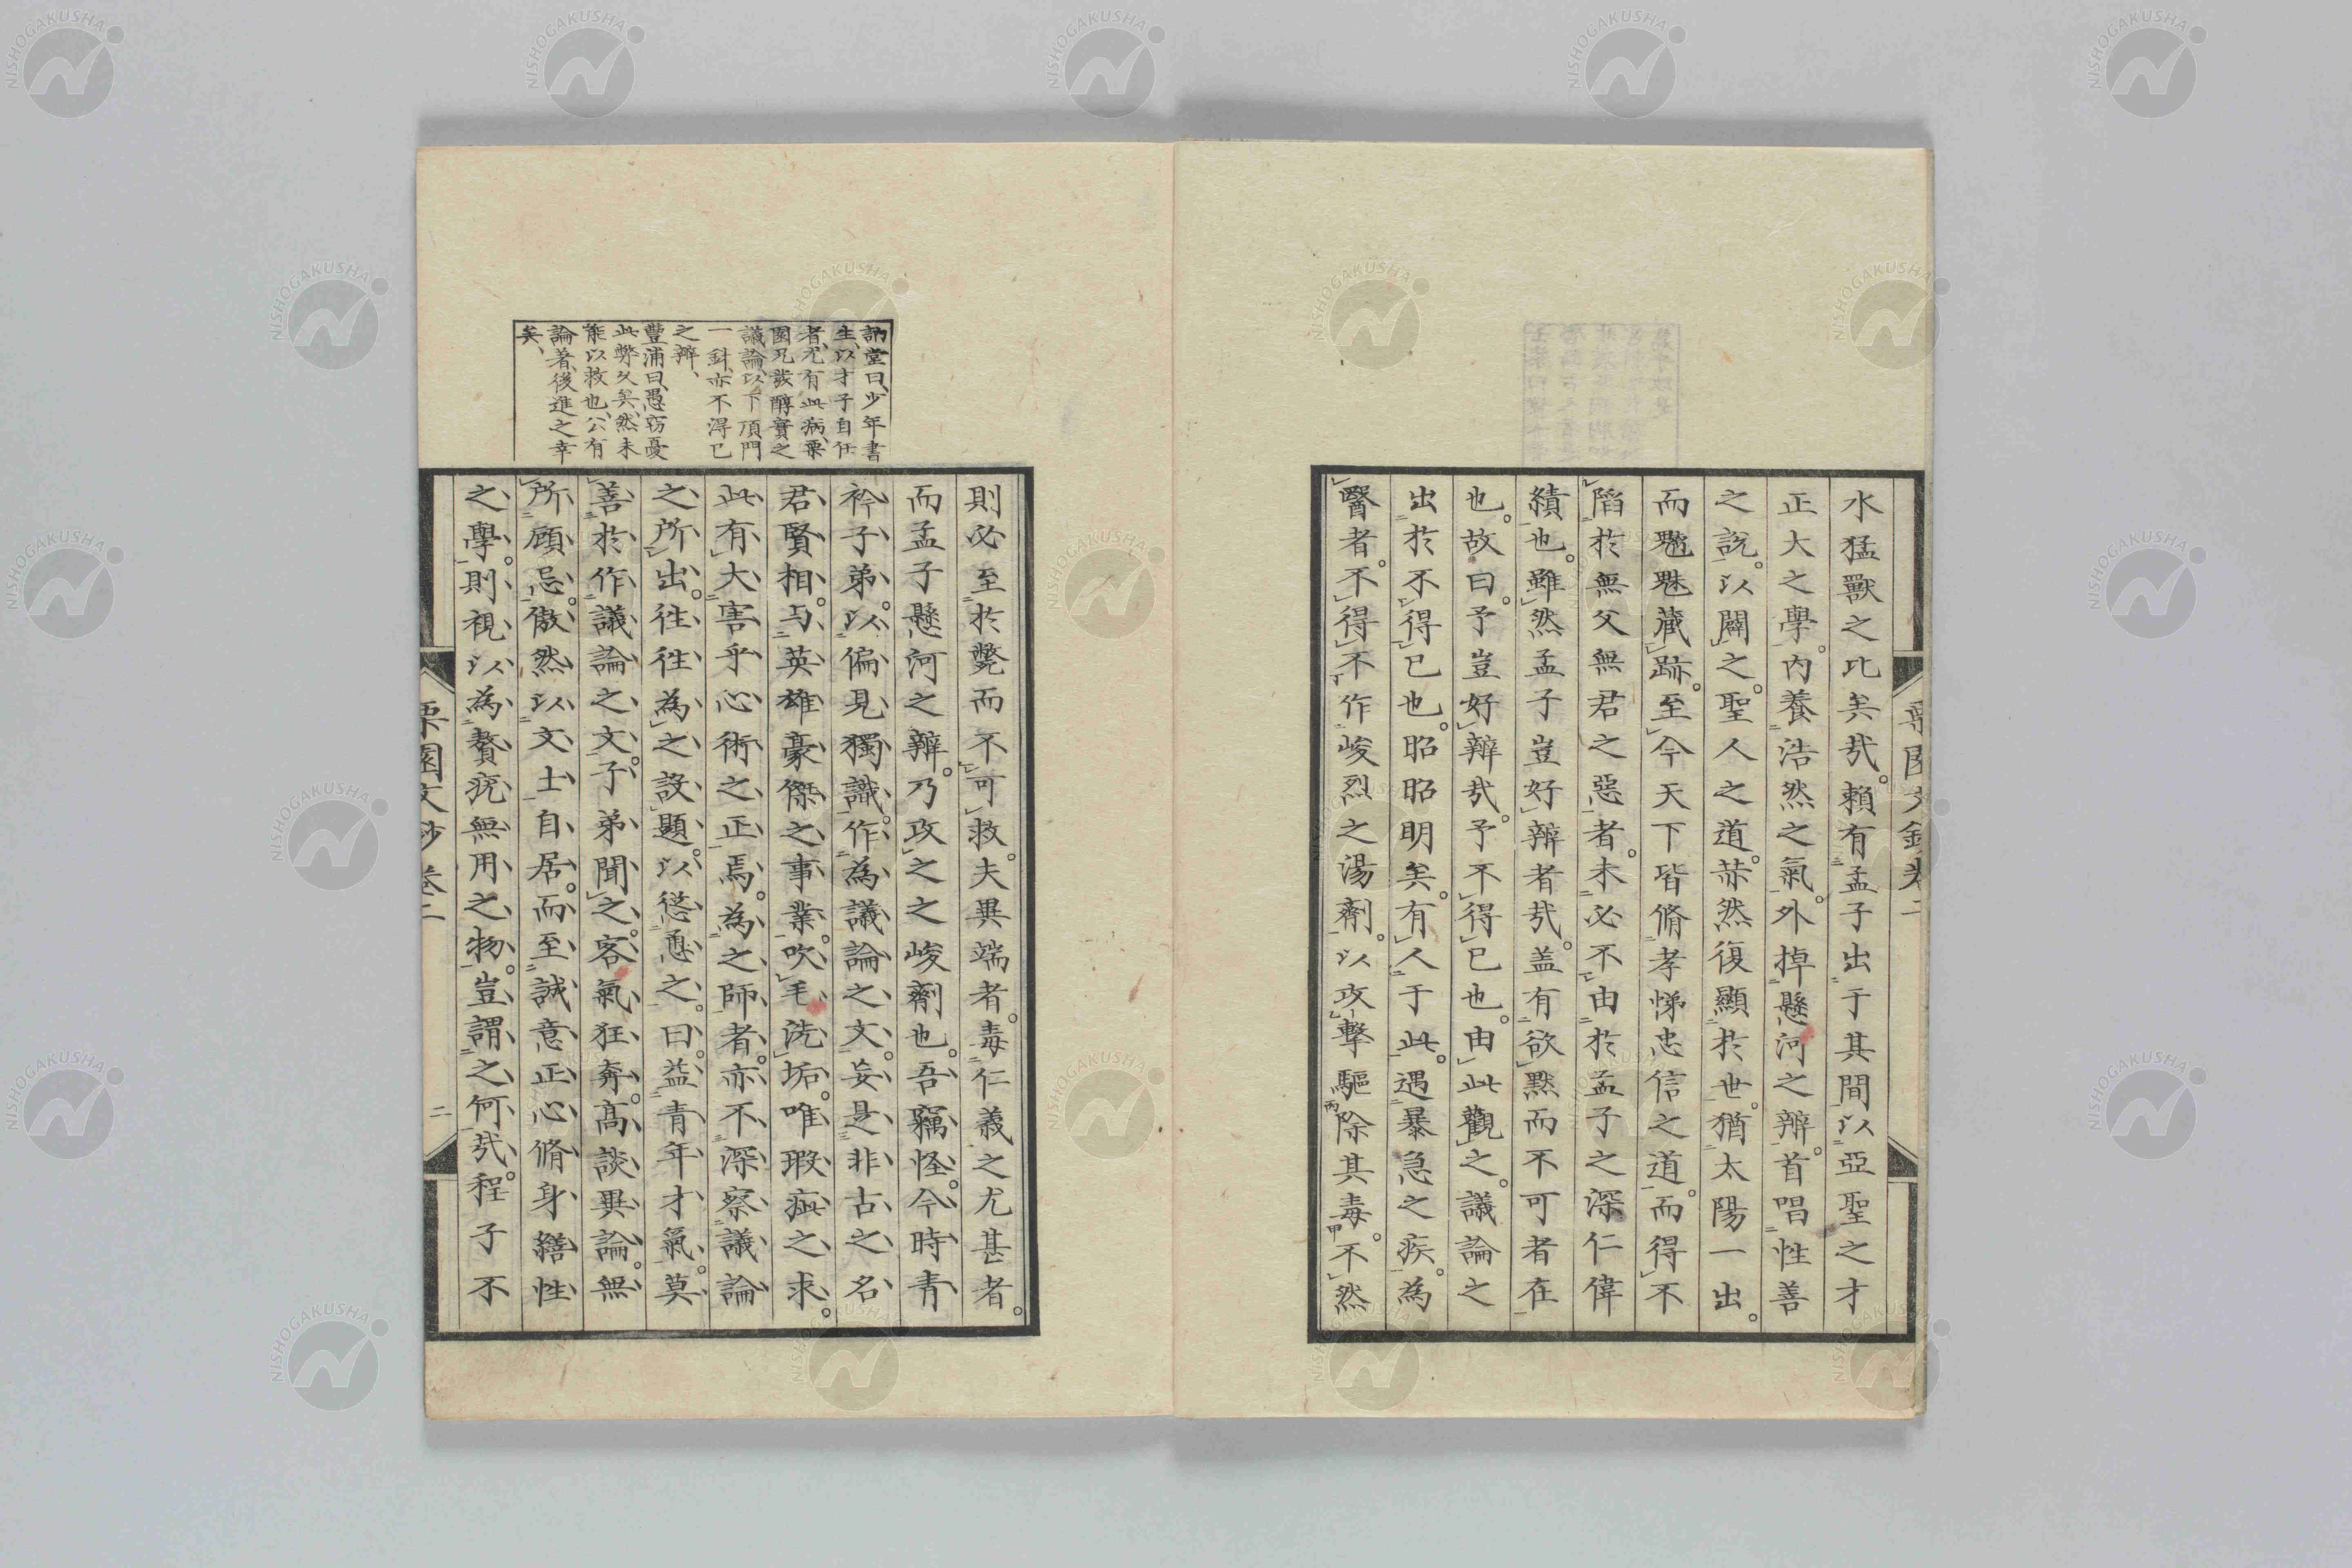 水猛獸之比矣哉。賴有孟子出于其間以亞聖之才
正大之學。內養浩然之氣。外掉懸河之辯。首唱性善
之說。以闢之。聖人之道。赫然復顯於世。猶太陽一出。
而魑魅藏跡。至今天下皆脩孝悌忠信之道。而得不
陷於無父無君之惡者。未必不由於孟子之深仁偉
績也。雖然孟子豈好辯者哉。盖有欲默而不可者在
也。故曰。予豈好辯哉。予不得已也。由此觀之。議論之
出於不得已也。昭昭明矣。有人于此。遇暴急之疾。為
醫者。不得不作峻烈之湯劑。以攻擊驅除其毒。不然
則必至於斃而不可救。夫異端者。毒仁義之尤甚者。
而孟子懸河之辯。乃攻之之峻劑也。吾竊怪。今時青
衿子弟。以偏見獨識。作為議論之文。妄是非古之名
君賢相。与英雄豪傑之事業。吹毛洗垢。唯瑕疵之求。
此有大害乎心術之正焉。為之師者。亦不深察議論
之所出。徃徃為之設題。以慫慂之。曰。益青年才氣。莫
善於作議論之文。子弟聞之。客氣狂奔。高談異論。無
所顧忌。傲然以文士自居。而至誠意正心脩身繕性
之學。則視以為贅疣無用之物。豈謂之何哉。程子不
訥堂曰、少年書
生、以才子自任
者、尤有此病、栗
園兄發醇實之
議論、以下頂門
一針、亦不得已
之辯、
豐浦曰、愚窃憂
此弊久矣、然未
能以救也、公有
論著、後進之幸
矣、
栗園文鈔卷二
二